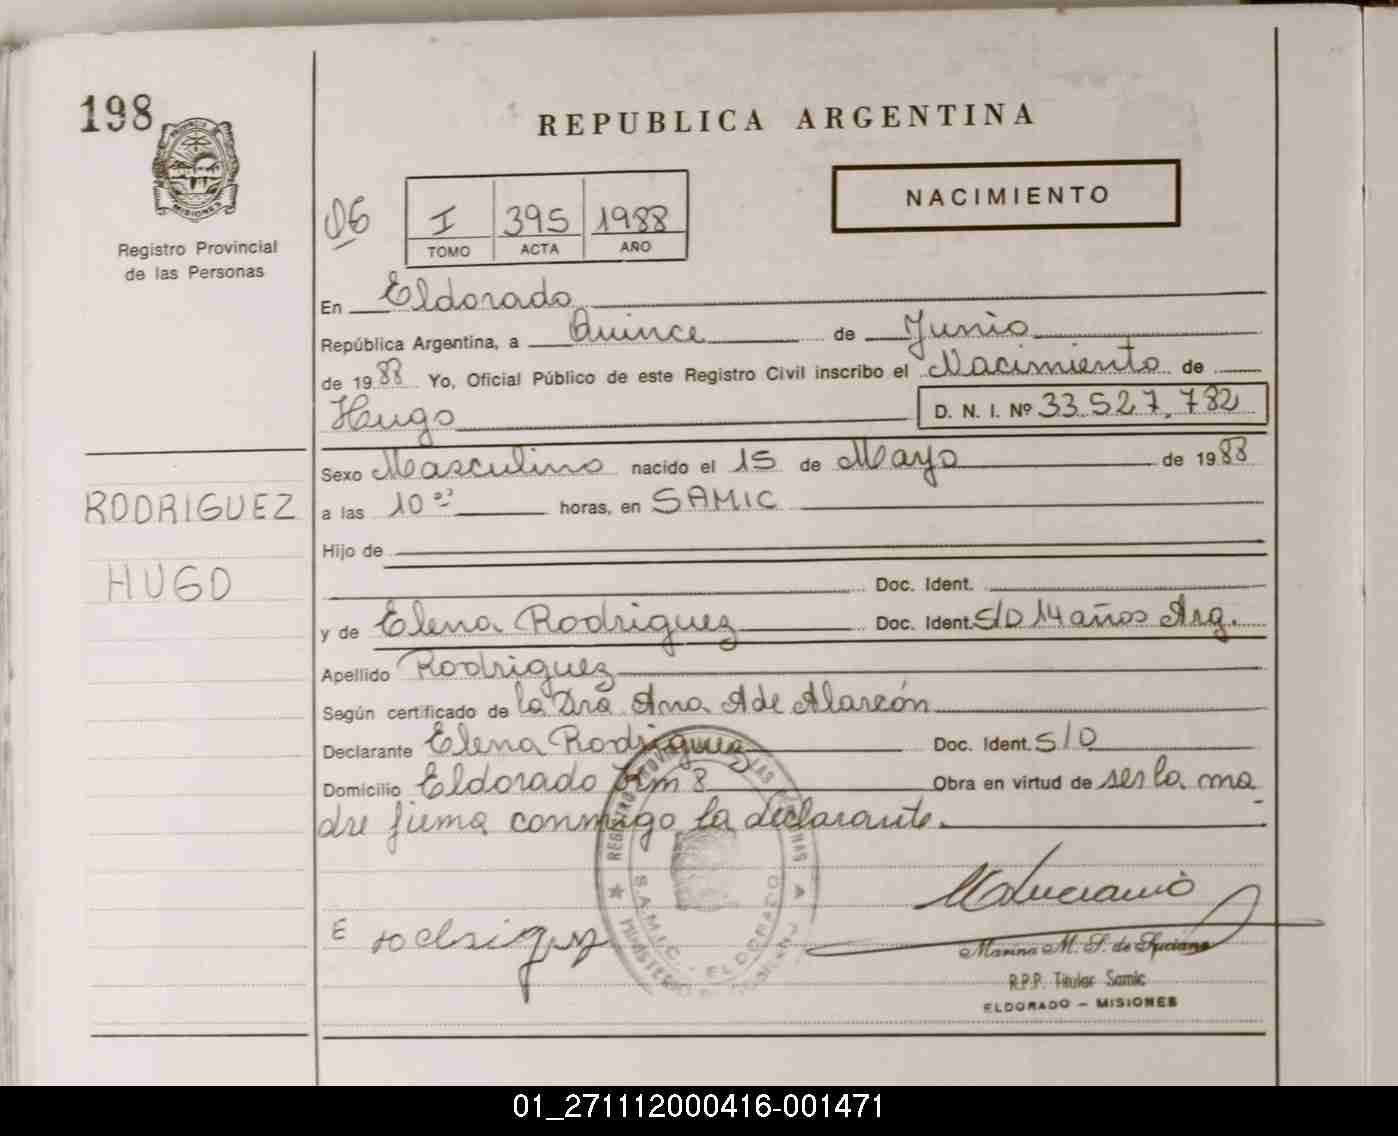 198
PROVINCIA DE MISIONES
Registro Provincial
de las Personas
REPUBLICA ARGENTINA
NACIMIENTO
06
I 395 1988
TOMO ACTA AÑO
En Eldorado
República Argentina, a Quince de Junio
de 1988 Yo, Oficial Público de este Registro Civil inscribo el Nacimiento de
Hugo D. N. I. Nº 33.527.782
Sexo Masculino nacido el 15 de Mayo de 1988
a las 10 horas, en SAMIC
RODRIGUEZ
HUGO
Hijo de
Doc. Ident.
y de Elena Rodriguez Doc. Ident. S/D 14 años Arg.
Apellido Rodriguez
Según certificado de la Dra Ana A de Alarcón
Declarante Elena Rodriguez Doc. Ident. S/D
Domicilio Eldorado Km 8 Obra en virtud de ser la ma
dre firma conmigo la declarante.
REGISTRO PROVINCIAL DE LAS PERSONAS
S.A.M.I.C. - ELDORADO
MINISTERIO DE
E rodriguez
MLuciano
Marina M. S. de Luciano
R.P.P. Titular Samic
ELDORADO - MISIONES
01_271112000416-001471